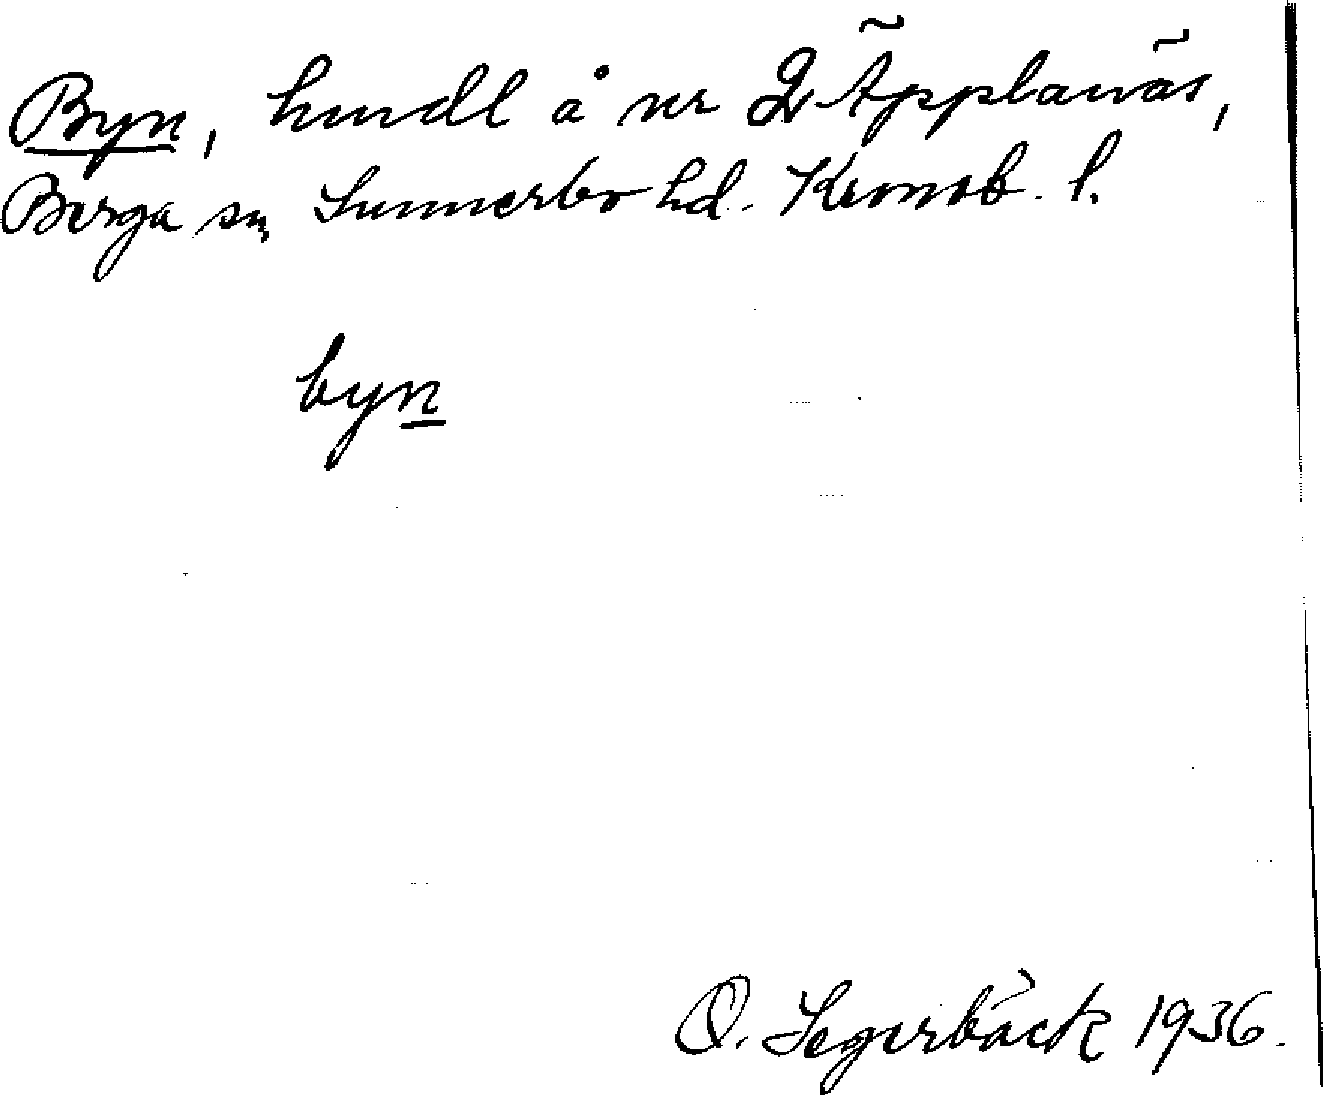 Byn, hmdl å nr 2 Äpplanäs,
Berga sn, Sunnerbo hd. Kronob. l.
byn
O. Segerbäck 1936.